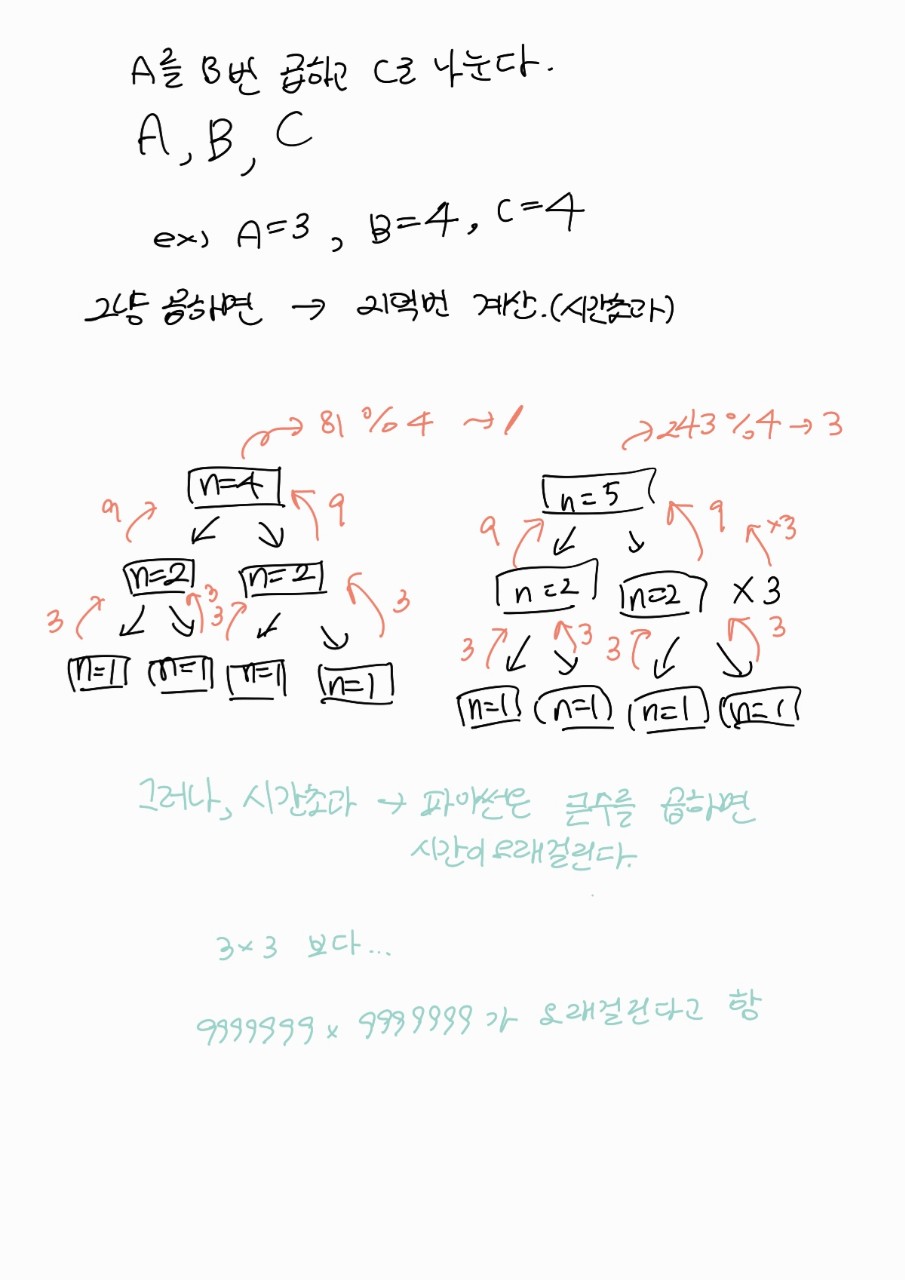 A를 B번 곱하고 C로 나눈다.
A, B, C
ex) A=3, B=4, C=4
그냥 곱하면 → 21억번 계산.(시간초과)
81 % 4 → 1
243 % 4 → 3
n=4
n=5
9 9
9 9 ×3
n=2 n=2
n=2 n=2 × 3
3 3 3 3
3 3 3 3
n=1 n=1 n=1 n=1
n=1 n=1 n=1 n=1
그러나, 시간초과 → 파이썬은 큰수를 곱하면
시간이 오래걸린다.
3×3 보다...
9999999 × 9999999가 오래걸린다고 함